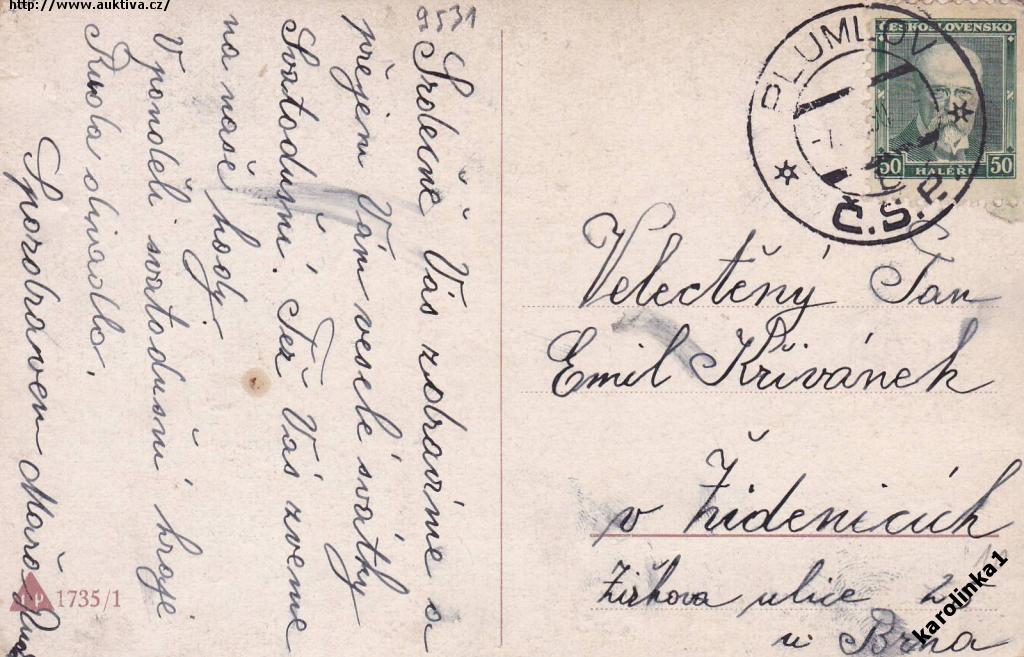 http://www.auktiva.cz/
9531
Srdečně Vás zdravíme a
přejem Vám veselé svátky
Svatodušní. Též Vás zveme
na naše hody.
V pondělí svatodušní hraje
Ruda divadlo.
S pozdravem Mařa
1735/1
PLUMLOV
Č.S.P.
ČESKOSLOVENSKO
50 HALÉŘŮ 50
Velectěný Pan
Emil Křivánek
v Židenicích
Žižkova ulice
u Brna
karolinka1